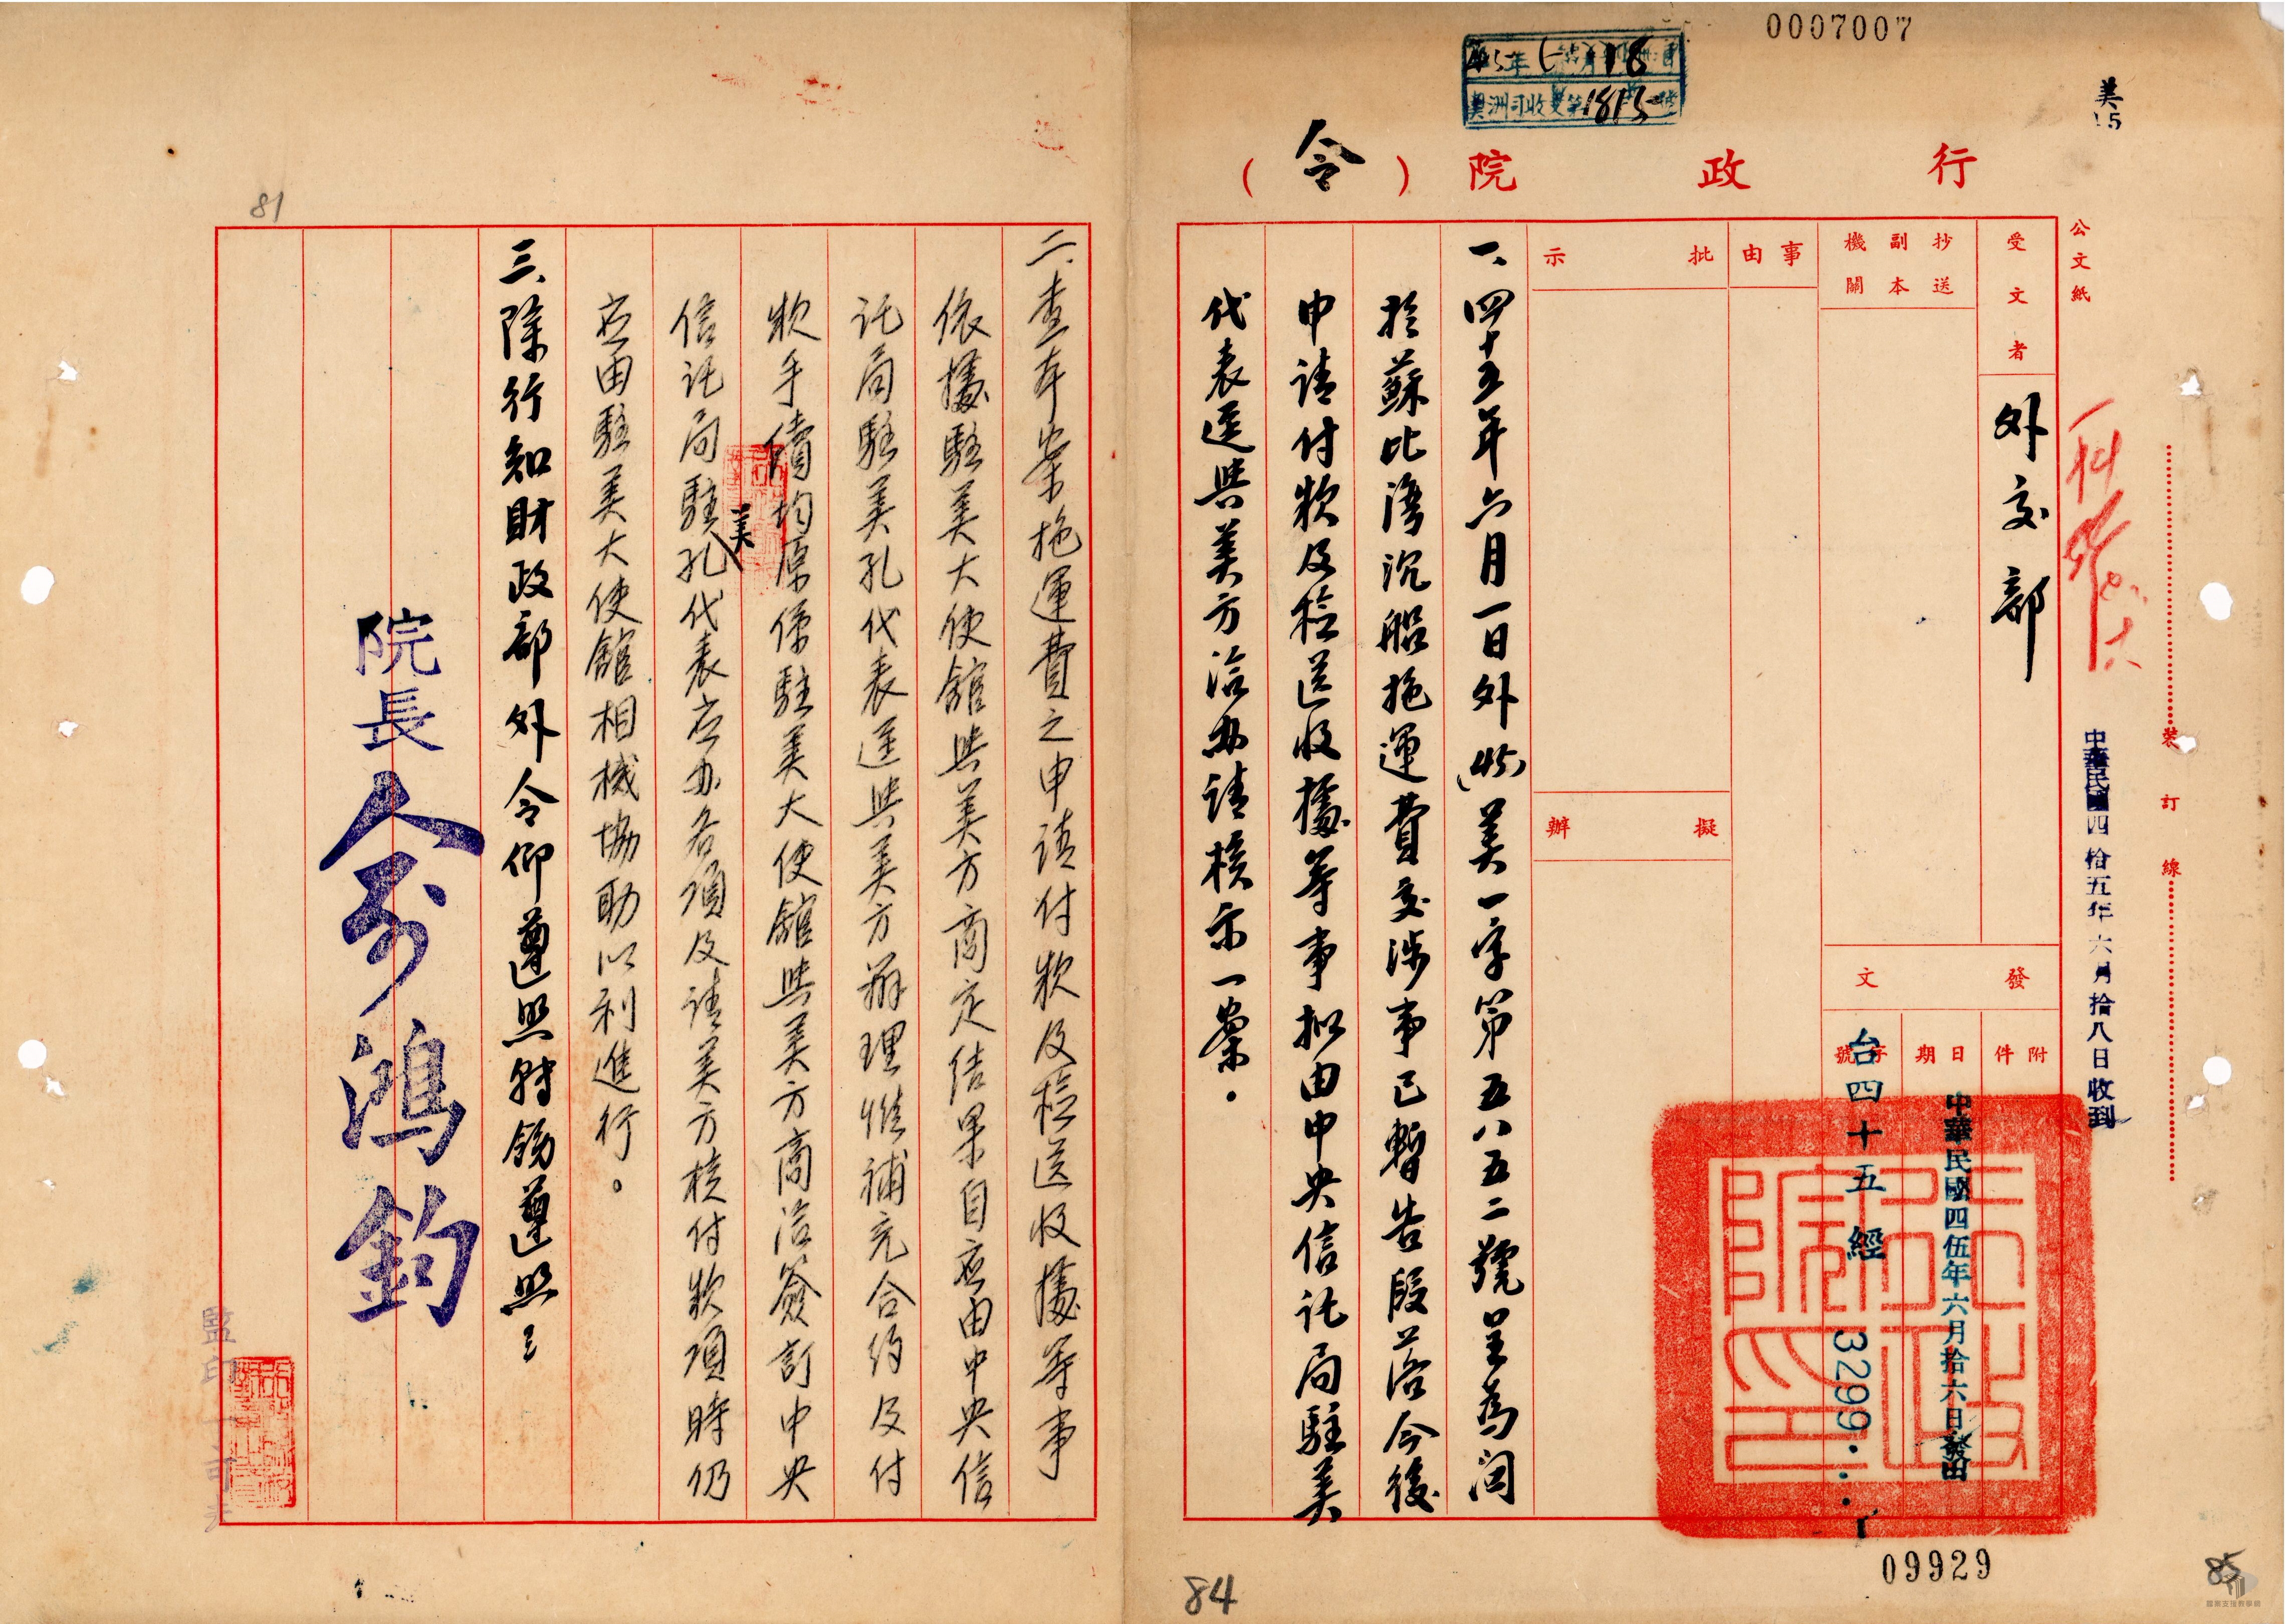 0007007
美
15
45年6月18
美洲司收文第1813號
行政院（令）
公文紙
受文者
外交部
抄送副本機關
事由
批示
擬辦
發文
附件
日期
字號
中華民國四伍年六月拾六日發出
台四十五經
3299
裝訂線
中華民國四拾五年六月拾八日收到
一、四十五年六月一日外(45)美一字第五八五二號呈為関
於蘇比灣沉船拖運費交涉事已暫告段落今後
申請付款及檢送收據等事擬由中央信託局駐美
代表逕與美方洽办請核示一案．
09929
85
84
81
二、查本案拖運費之申請付款及檢送收據等事
依據駐美大使館與美方商定結果自应由中央信
託局駐美孔代表逕與美方辦理惟補充合約及付
款手續均原係駐美大使館與美方商洽簽訂中央
信託局駐美孔代表应办各項及請美方核付款項時仍
应由駐美大使館相機協助以利進行。
三、除行知財政部外令仰遵照轉飭遵照
院長俞鴻鈞
監印